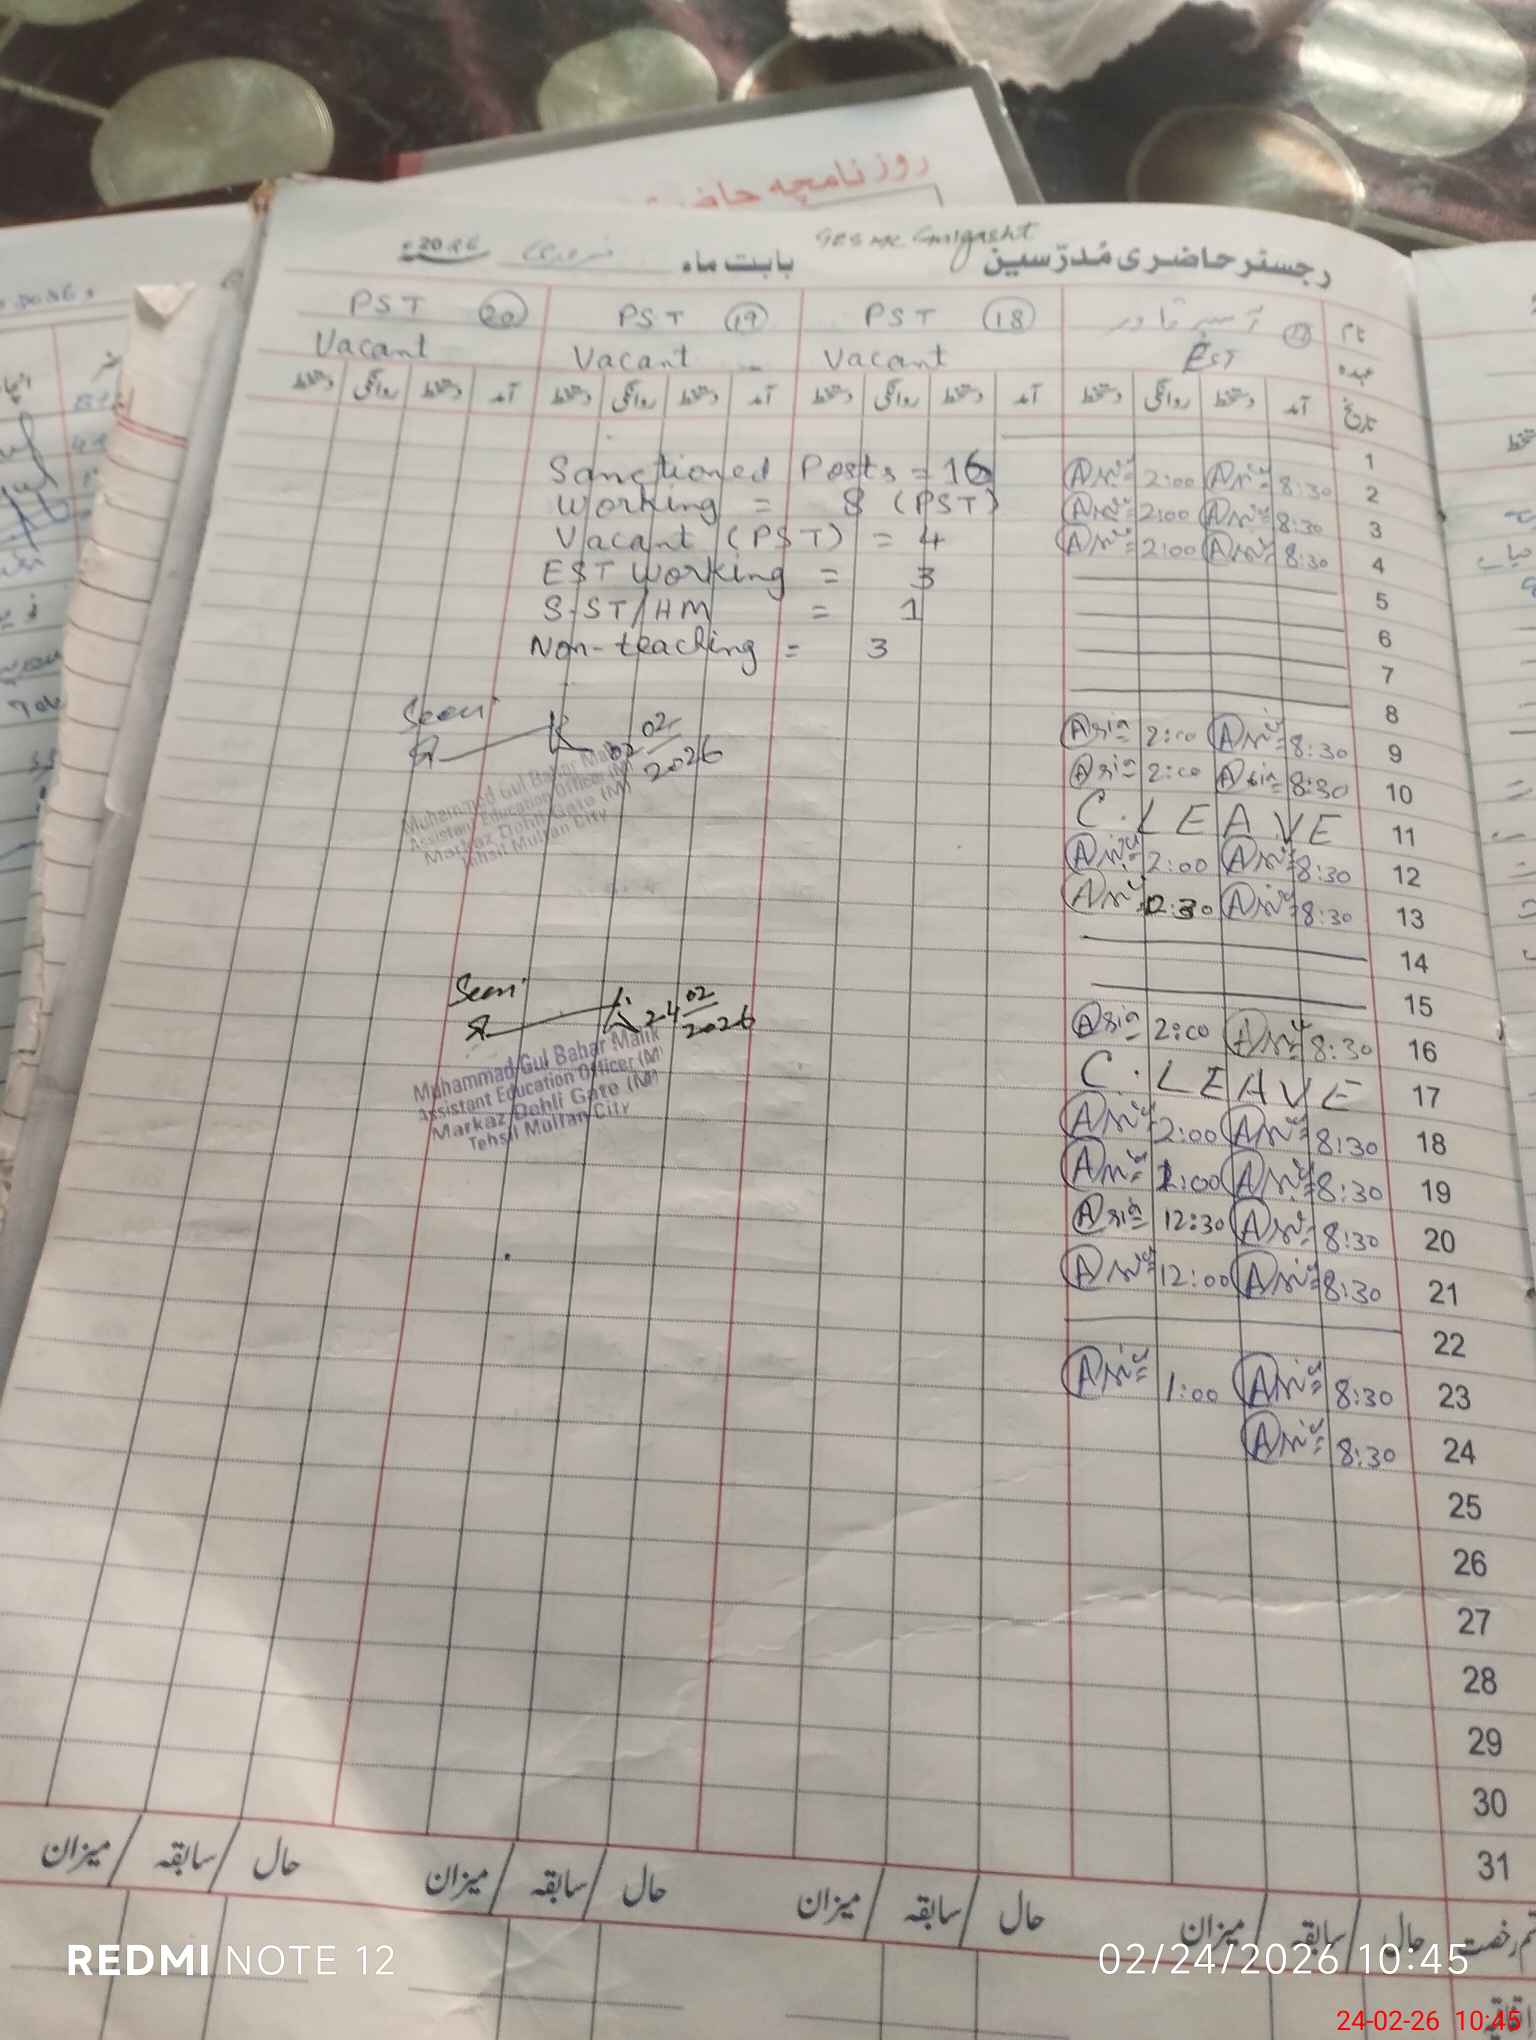 روزنامچہ حاضر
GES MC Gulgasht
رجسٹر حاضری مُدرّسین بابت ماہ فروری 2026ء
نام PST 18 PST 19 PST 20
عہدہ EST Vacant Vacant Vacant
تاریخ آمد دستخط روانگی دستخط آمد دستخط روانگی دستخط آمد دستخط روانگی دستخط آمد دستخط روانگی دستخط
1
Sanctioned Posts = 16
Working = 8 (PST)
Vacant (PST) = 4
EST Working = 3
S.ST/HM = 1
Non-teaching = 3
2 8:30 Asia 2:00 Asia
3 8:30 Asia 2:00 Asia
4 8:30 Asia 2:00 Asia
5
6
7
8
9 8:30 Asia 2:00 Asia
10 8:30 Asia 2:00 Asia
11 C. LEAVE
12 8:30 Asia 2:00 Asia
13 8:30 Asia 12:30 Asia
14
15
16 8:30 Asia 2:00 Asia
17 C. LEAVE
18 8:30 Asia 2:00 Asia
19 8:30 Asia 1:00 Asia
20 8:30 Asia 12:30 Asia
21 8:30 Asia 12:00 Asia
22
23 8:30 Asia 1:00 Asia
24 8:30 Asia
25
26
27
28
29
30
31
Seen
02 02 2026
Muhammad Gul Bahar Malik
Assistant Education Officer (M)
Markaz Dohli Gate (M)
Tehsil Multan City
Seen
24 02 2026
Muhammad Gul Bahar Malik
Assistant Education Officer (M)
Markaz Dohli Gate (M)
Tehsil Multan City
حال / سابقہ / میزان حال / سابقہ / میزان حال / سابقہ / میزان حال / سابقہ / میزان
REDMI NOTE 12
02/24/2026 10:45
24-02-26 10:45